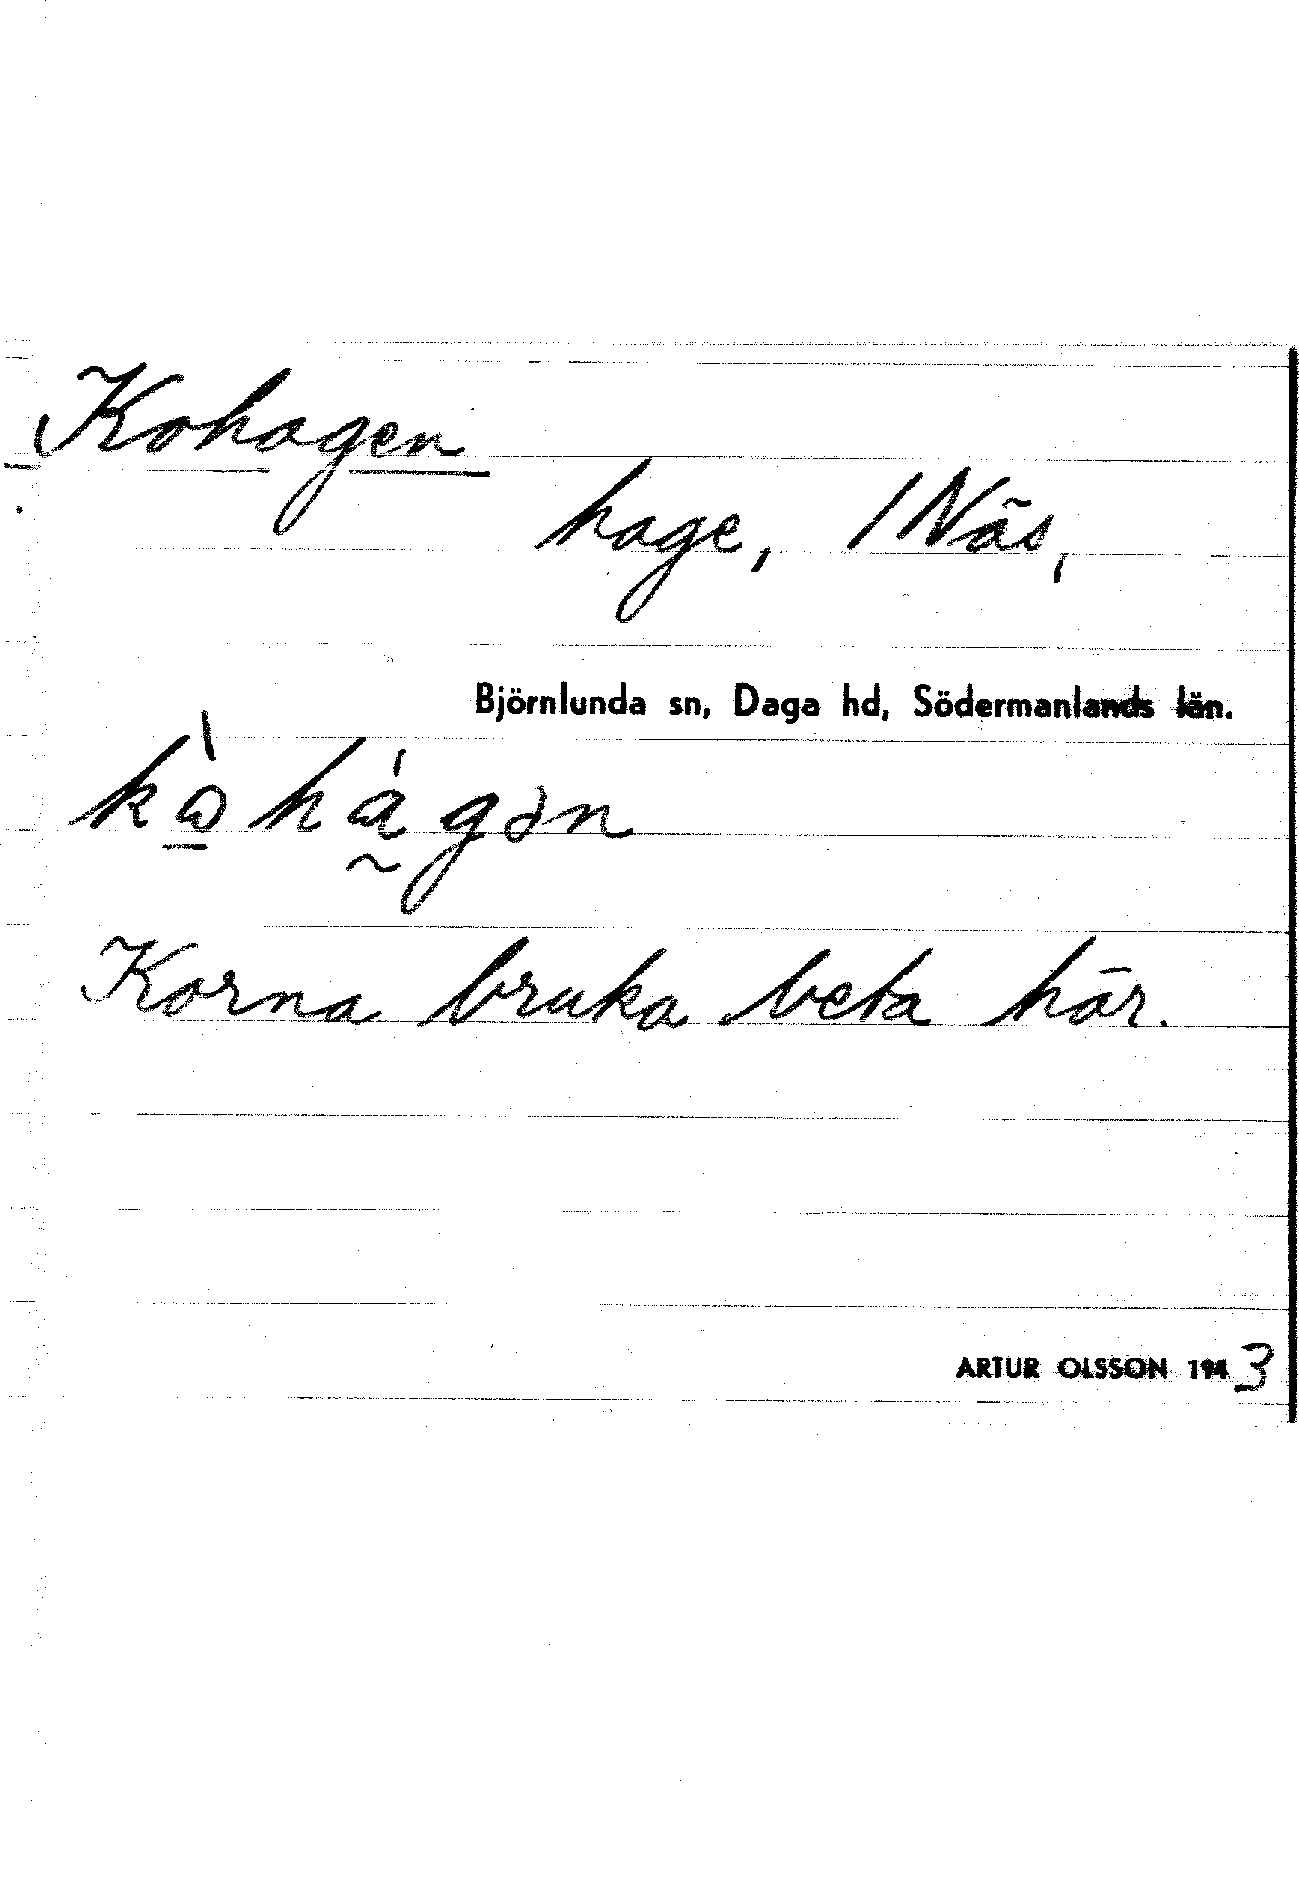 Kohagen
hage, / Näs,
Björnlunda sn, Daga hd, Södermanlands län.
kòhágən
Korna bruka beta här.
ARTUR OLSSON 1943